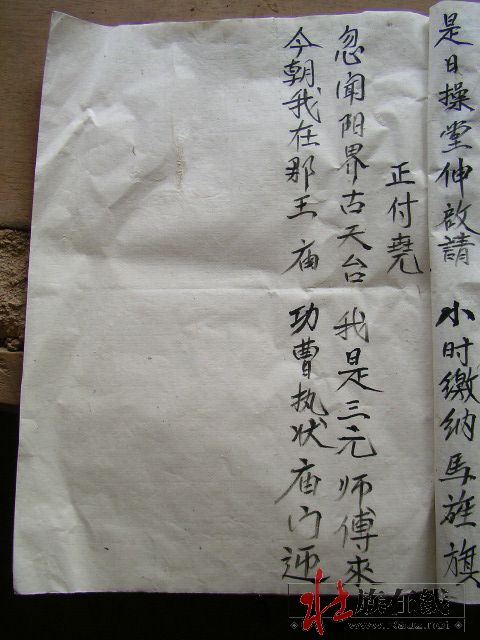 是日操堂伸啟請 小时缴纳马旌旗
正付尭
忽闻阳界古天台 我是三元师傅來
今朝我在那王庙 功曹执状庙门迎
壮族在线